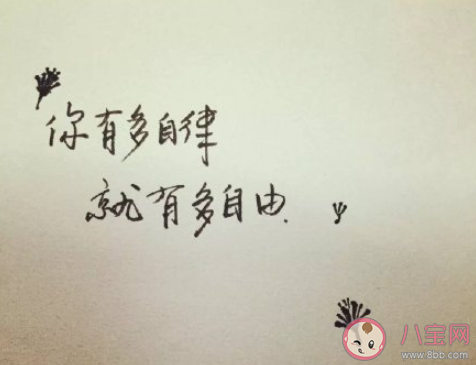 你有多自律
就有多自由.
八宝网
www.8bb.com